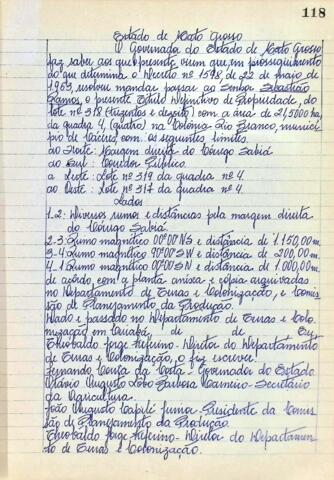 118
Estado de Mato Grosso
O Governador do Estado de Mato Grosso
faz saber aos que presente virem que, em prosseguimento
do que determina o Decreto nº 1598, de 22 de maio de
1953, resolveu mandar passar ao Senhor Sebastião
Ramos, o presente Título Definitivo de Propriedade, do
lote nº 318 (trezentos e dezoito) com a área de 21,5000 ha,
da quadra 4, (quatro) na Colônia Rio Branco, municí-
pio de Cáceres, com os seguintes limites:
ao Norte: Margem direita do Córrego Sabiá
ao Sul: Corredor Público.
a Leste: Lote nº 319 da quadra nº 4.
ao Oeste: Lote nº 317 da quadra nº 4.
Lados
1.2: Diversos rumos e distâncias pela margem direita
do Córrego Sabiá.
2-3: Rumo magnético 00º00'NS e distância de 1.150,00m.
3-4: Rumo magnético 90º00'SW e distância de 200,00m.
4-1: Rumo magnético 00º00'SN e distância de 1.000,00m.
de acordo com a planta anexa e cópia arquivadas
no Departamento de Terras e Colonização, e Comis-
são de Planejamento da Produção.
Dado e passado no Departamento de Terras e Colo-
nização em Cuiabá, de de Eu,
Theobaldo Jorge - Diretor do Departamento
de Terras e Colonização, o fiz escrever.
Fernando Corrêa da Costa - Governador do Estado
Augusto Lobo Barbosa Carneiro - Secretário
da Agricultura.
João Augusto Capilé Junior - Presidente da Comis-
são de Planejamento da Produção.
Theobaldo Jorge - Diretor do Departamen-
to de Terras e Colonização.